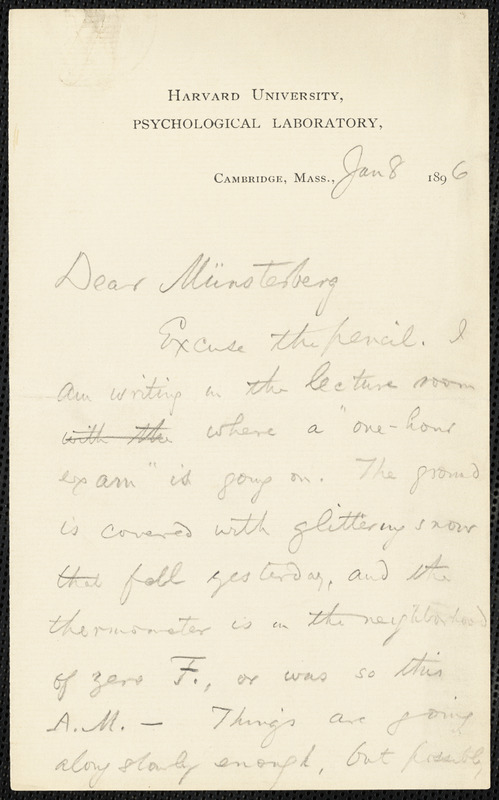 HARVARD UNIVERSITY,
PSYCHOLOGICAL LABORATORY,
CAMBRIDGE, MASS., Jan 8 1896
Dear Münsterberg
Excuse the pencil. I
am writing in the lecture room
with the where a "one-hour
exam" is going on. The ground
is covered with glittering snow
that fell yesterday, and the
thermometer is in the neighborhood
of zero F., or was so this
A.M. — Things are going
along slowly enough, but possibly